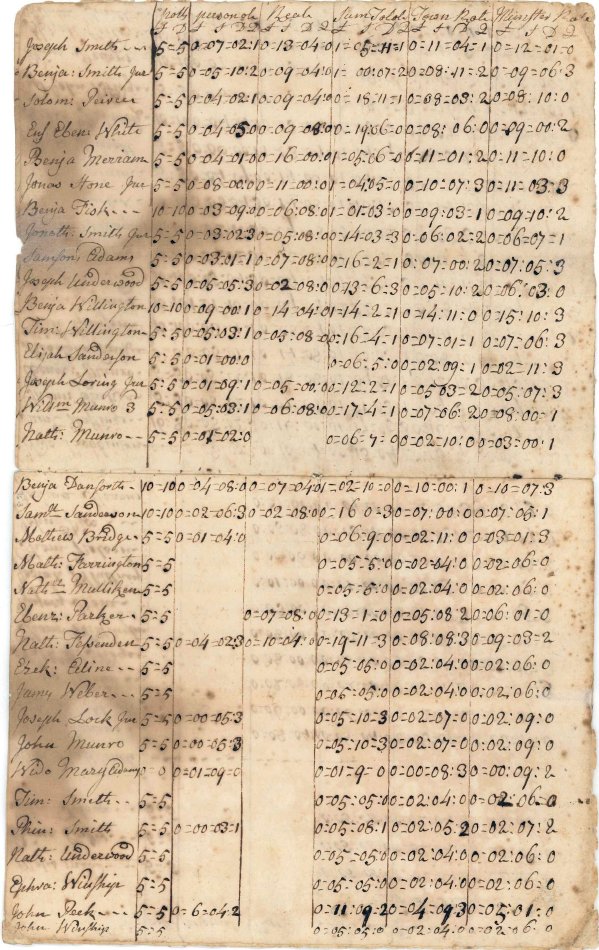 Poll personal Real Sum Totole Town Rate Minister Rate
Joseph Smith 5=5 0=07=02:1 0=13=04:0 1=05=11=1 0=11=04=1 0=12=01=0
Benja: Smith Jur 5=5 0=05=10:2 0=09=04:0 1=00:07=2 0=08:11=2 0=09=06:3
Solom: Peirce 5=5 0=04=02:1 0=09=04:0 0=18=11=1 0=08=08:2 0=08:10:0
Ens Eben: White 5=5 0=04=05:0 0=09=08:0 0=19:06=0 0=08:06:0 0=09=00:2
Benja Merriam 5=5 0=04=01:0 0=16=00:0 1=05:06=0 0=11=01:2 0=11=10:0
Jonas Stone Jur 5=5 0=08=00:0 0=11=00:0 1=04:05=0 0=10=07:3 0=11=03=3
Benja Fisk 10=10 0=03=09:0 0=06:08:0 1=01=03=0 0=09:03=1 0=09:10:2
Jonath: Smith Jur 5=5 0=03=02:3 0=05=08:0 0=14=03=3 0=06:02=2 0=06=07=1
Samson Adams 5=5 0=03=01=1 0=07=08:0 0=16=2=1 0=07=00:2 0=07=05:3
Joseph Underwood 5=5 0=05=05:3 0=02=08:0 0=13=6=3 0=05=10:2 0=06:03:0
Benja Willington 10=10 0=09=00:1 0=14=04:0 1=14=2=1 0=14:11=0 0=15=10:3
Tim: Willington 5=5 0=05:03:1 0=05=08=0 0=16=4=1 0=07=01=1 0=07=06:3
Elijah Sanderson 5=5 0=01=00:0 0=06:5:0 0=02=09:1 0=02=11:3
Joseph Loring Jur 5=5 0=01=09:1 0=05=00:0 0=12=2=1 0=05:03=2 0=05=07:3
Willm Munro 3 5=5 0=05=03:1 0=06:08:0 0=17=4=1 0=07=06:2 0=08=00=1
Nath: Munro 5=5 0=01=02:0 0=06=7=0 0=02=10:0 0=03=00:1
Benja Danforth 10=10 0=04=08:0 0=07=04:0 1=02=10=0 0=10=00:1 0=10=07:3
Samll Sanderson 10=10 0=02=06:3 0=02=08:0 0=16 0=3 0=07:00:0 0=07:05:1
Mathew Bridge 5=5 0=01=04:0 0=06=9:0 0=02=11:0 0=03=01:3
Math: Farrington 5=5 0=05=5:0 0=02=04:0 0=02=06:0
Nathll Mulliken 5=5 0=05=5:0 0=02=04:0 0=02=06:0
Ebenr: Parker 5=5 0=07=08:0 0=13=1=0 0=05:08:2 0=06:01=0
Nath: Fessenden 5=5 0=04=02:3 0=10:04:0 0=19=11=3 0=08:08:3 0=09=03=2
Ezek: Cline 5=5 0=05=05:0 0=02=04:0 0=02=06:0
Jams Weber 5=5 0=05=05:0 0=02=04:0 0=02=06:0
Joseph Lock Jur 5=5 0=00=05:3 0=05=10=3 0=02=07:0 0=02=09:0
John Munro 5=5 0=00=05:3 0=05=10=3 0=02=07:0 0=02=09:0
Wido Mary Adams 0=0 0=01=09=0 0=01=9=0 0=00=08:3 0=00=09:2
Tim: Smith 5=5 0=05=05:0 0=02=04:0 0=02=06=0
Phin: Smith 5=5 0=00=03=1 0=05=08:1 0=02=05:2 0=02=07:2
Nath: Underwood 5=5 0=05=05:0 0=02=04:0 0=02=06:0
Ephra: Winship 5=5 0=05=05:0 0=02=04:0 0=02=06:0
John Peek 5=5 0=6=04:2 0=11=09=2 0=04=09:3 0=05=01:0
John Winship 5=5 0=05:05:0 0=02=04:0 0=02=06:0